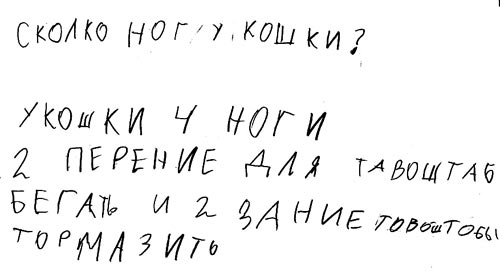 СКОЛКО НОГ У КОШКИ?
УКОШКИ 4 НОГИ
2 ПЕРЕНИЕ ДЛЯ ТАВОШТАБ
БЕГАТЬ И 2 ЗДНИЕ ТОВОШТОБЫ
ТОРМАЗИТЬ